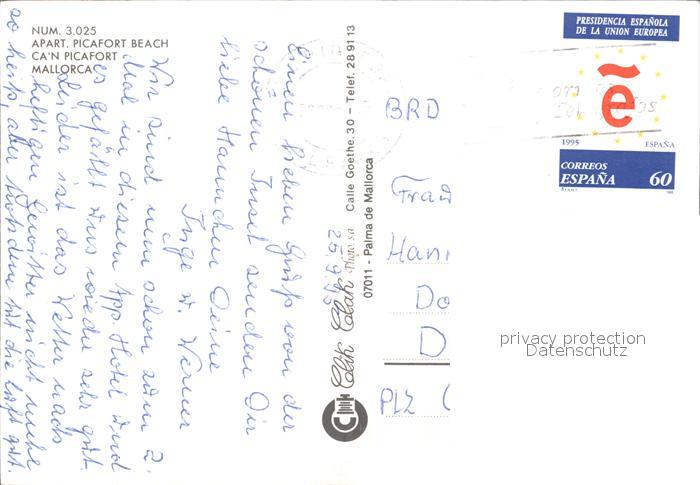 NUM. 3.025
APART. PICAFORT BEACH
CA'N PICAFORT
MALLORCA
25.9.95
Einen lieben Gruß von der
schönen Insel senden Dir
liebe Hannchen Deine
Inge u. Werner
Wir sind nun schon zum 2.
Mal in diesem App Hotel und
es gefällt uns wieder sehr gut.
Leider ist das Wetter nach
heftigen Gewitter nicht mehr
so heiß, aber trotzdem ist die Luft gut.
Clak Clak Photo, sa Calle Goethe, 30 – Telef. 28 91 13
07011 - Palma de Mallorca
BRD
Frau
Hann
Do
D
PLZ
PRESIDENCIA ESPAÑOLA
DE LA UNION EUROPEA
ẽ
1995 ESPAÑA
CORREOS
ESPAÑA 60
privacy protection
Datenschutz